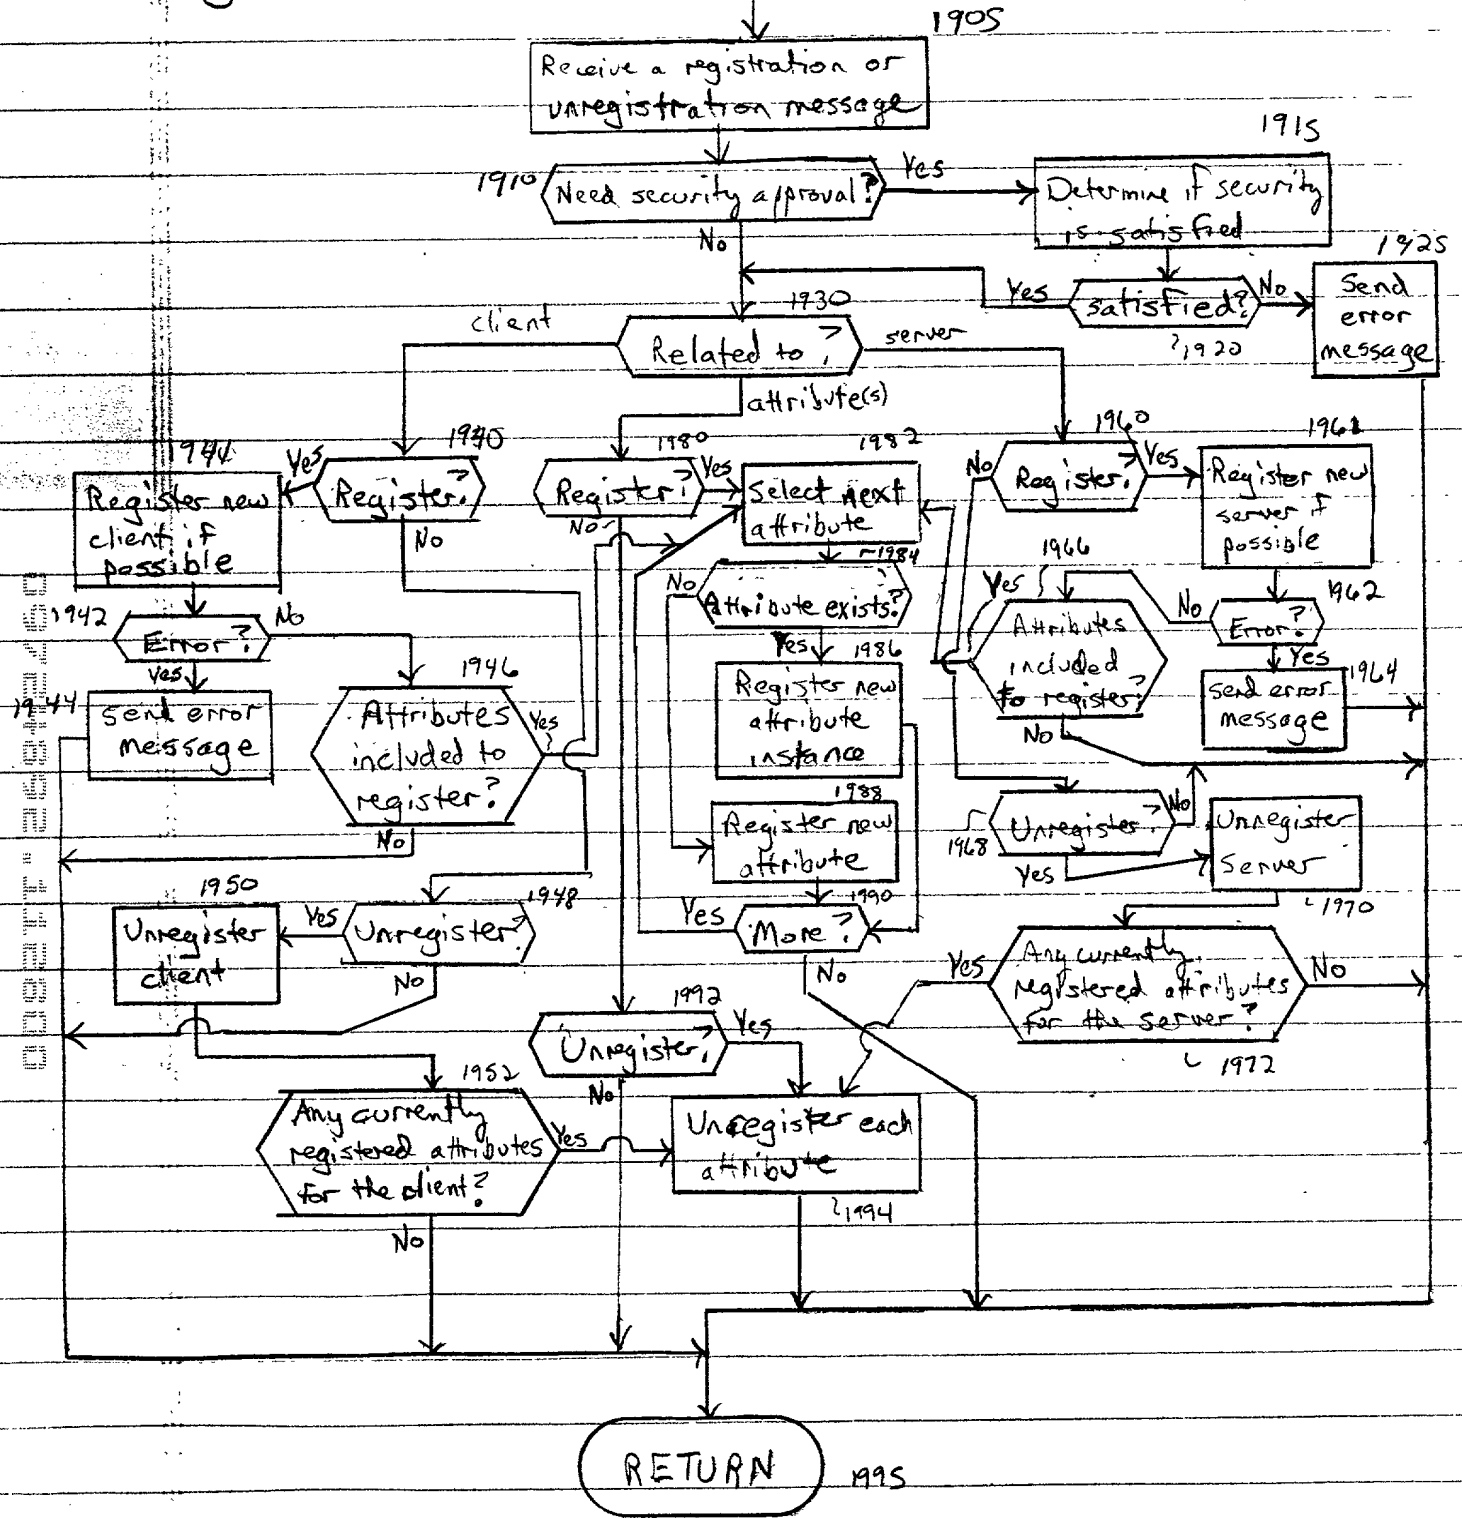 1905
Receive a registration or
unregistration message
1910
Need security approval?
Yes
No
1915
Determine if security
is satisfied
satisfied?
Yes
No
1920
1925
Send
error
message
1930
Related to?
client
server
attribute(s)
1940
Register?
Yes
No
Register new
client if
possible
1942
Error?
No
Yes
1944
send error
message
1946
Attributes
included to
register?
Yes
No
1948
Unregister?
Yes
No
1950
Unregister
client
1952
Any currently
registered attributes
for the client?
Yes
No
1980
Register?
Yes
No
1982
Select next
attribute
1984
Attribute exists?
No
Yes
1986
Register new
attribute
instance
1988
Register new
attribute
1990
More?
Yes
No
1992
Unregister?
Yes
No
Unregister each
attribute
1994
1960
Register?
No
Yes
1961
Register new
server if
possible
1962
Error?
No
Yes
1964
send error
message
1966
Attributes
included
to register?
Yes
No
1968
Unregister?
No
Yes
Unregister
Server
1970
Any currently
registered attributes
for the server?
Yes
No
1972
RETURN
1995